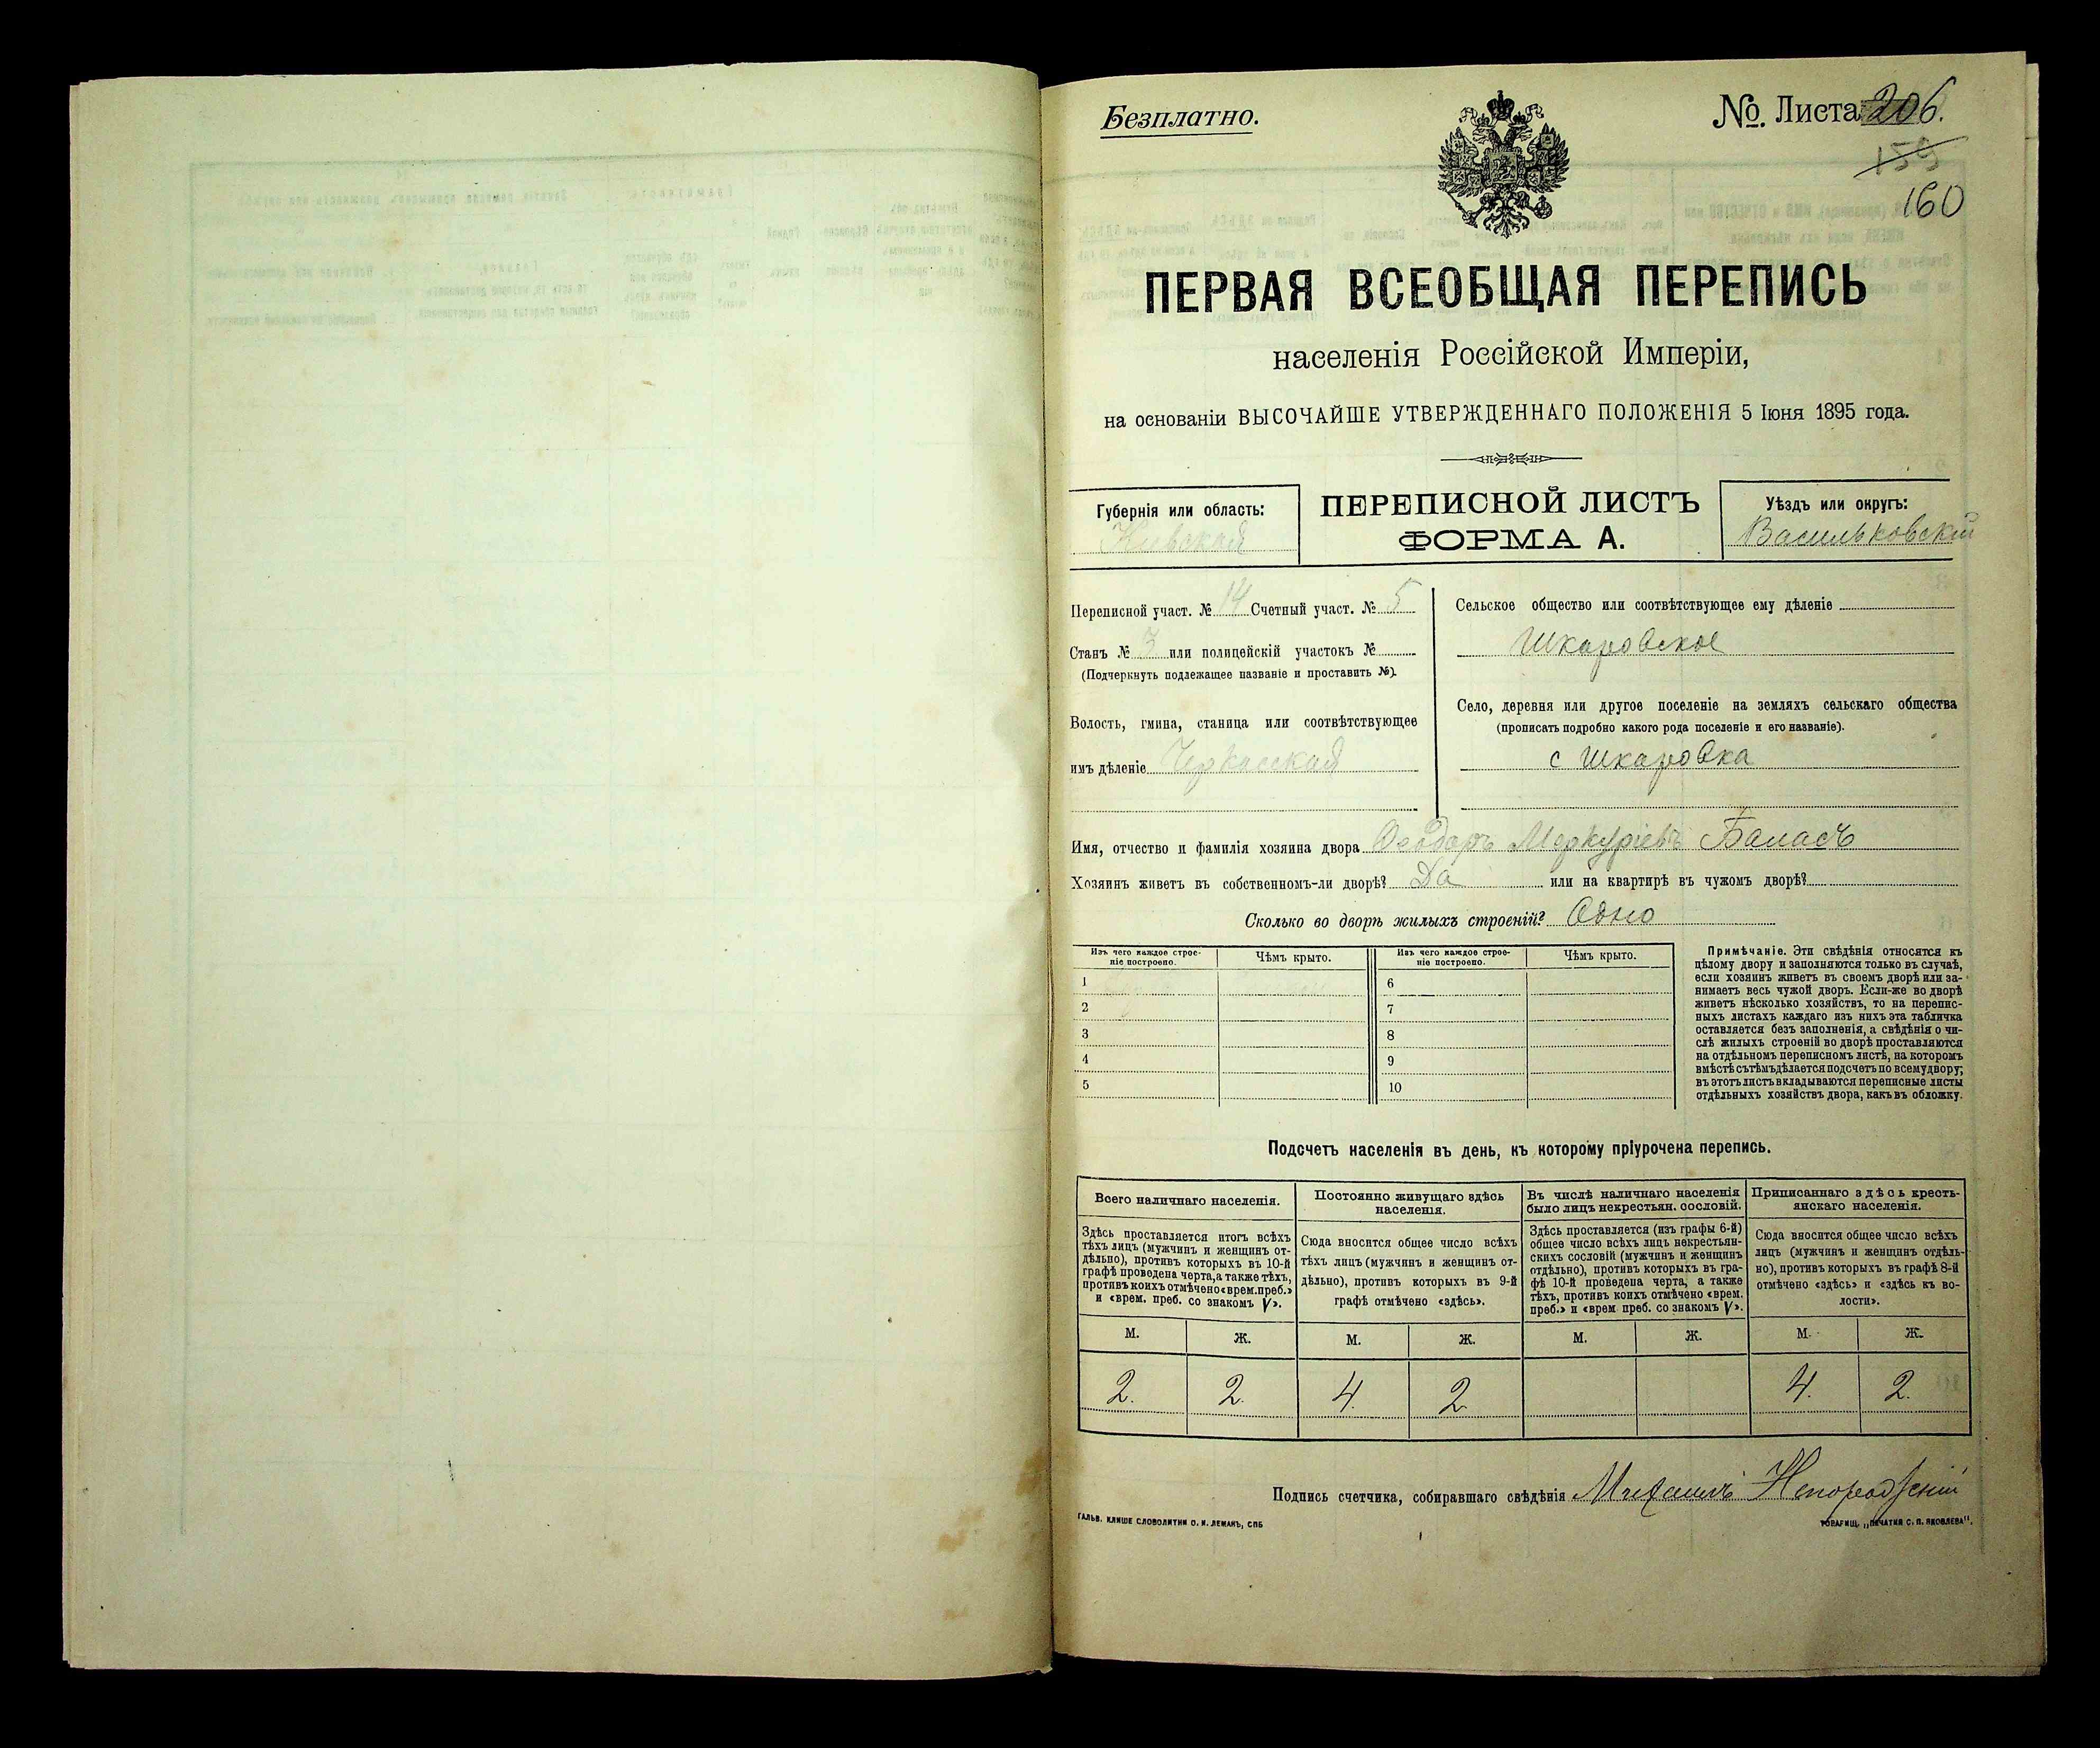 Безплатно.
№. Листа 206.
159
160
ПЕРВАЯ ВСЕОБЩАЯ ПЕРЕПИСЬ
населенія Россійской Имперіи,
на основаніи ВЫСОЧАЙШЕ УТВЕРЖДЕННАГО ПОЛОЖЕНІЯ 5 Іюня 1895 года.
Губернія или область:
Кіевская
ПЕРЕПИСНОЙ ЛИСТЪ
ФОРМА А.
Уѣздъ или округъ:
Васильковскій
Переписной участ. № 14 Счетный участ. № 5
Станъ № 3 или полицейскій участокъ №
(Подчеркнуть подлежащее названіе и проставить №).
Волость, гмина, станица или соотвѣтствующее
имъ дѣленіе Черкасская
Сельское общество или соотвѣтствующее ему дѣленіе
Шкаровское
Село, деревня или другое поселеніе на земляхъ сельскаго общества
(прописать подробно какого рода поселеніе и его названіе).
с Шкаровка
Имя, отчество и фамилія хозяина двора Ѳеодоръ Меркуріевъ Баласъ
Хозяинъ живетъ въ собственномъ-ли дворѣ? Да или на квартирѣ въ чужомъ дворѣ?
Сколько во дворѣ жилыхъ строеній? Одно
Изъ чего каждое строе-
ніе построено.
Чѣмъ крыто.
Изъ чего каждое строе-
ніе построено.
Чѣмъ крыто.
1
2
3
4
5
6
7
8
9
10
Примѣчаніе. Эти свѣдѣнія относятся къ
цѣлому двору и заполняются только въ случаѣ,
если хозяинъ живетъ въ своемъ дворѣ или за-
нимаетъ весь чужой дворъ. Если-же во дворѣ
живетъ нѣсколько хозяйствъ, то на перепис-
ныхъ листахъ каждаго изъ нихъ эта табличка
оставляется безъ заполненія, а свѣдѣнія о чи-
слѣ жилыхъ строеній во дворѣ проставляются
на отдѣльномъ переписномъ листѣ, на которомъ
вмѣстѣ съ тѣмъ дѣлается подсчетъ по всему двору;
въ этотъ листъ вкладываются переписные листы
отдѣльныхъ хозяйствъ двора, какъ въ обложку.
Подсчетъ населенія въ день, къ которому пріурочена перепись.
Всего наличнаго населенія.
Здѣсь проставляется итогъ всѣхъ
тѣхъ лицъ (мужчинъ и женщинъ от-
дѣльно), противъ которыхъ въ 10-й
графѣ проведена черта, а также тѣхъ,
противъ коихъ отмѣчено «врем. преб.»
и «врем. преб. со знакомъ V».
Постоянно живущаго здѣсь
населенія.
Сюда вносится общее число всѣхъ
тѣхъ лицъ (мужчинъ и женщинъ от-
дѣльно), противъ которыхъ въ 9-й
графѣ отмѣчено «здѣсь».
Въ числѣ наличнаго населенія
было лицъ некрестьян. сословій.
Здѣсь проставляется (изъ графы 6-й)
общее число всѣхъ лицъ некрестьян-
скихъ сословій (мужчинъ и женщинъ
отдѣльно), противъ которыхъ въ гра-
фѣ 10-й проведена черта, а также
тѣхъ, противъ коихъ отмѣчено «врем.
преб.» и «врем. преб. со знакомъ V».
Приписаннаго здѣсь кресть-
янскаго населенія.
Сюда вносится общее число всѣхъ
лицъ (мужчинъ и женщинъ отдѣль-
но), противъ которыхъ въ графѣ 8-й
отмѣчено «здѣсь» и «здѣсь къ во-
лости».
М. Ж. М. Ж. М. Ж. М. Ж.
2. 2. 4. 2 4. 2.
Подпись счетчика, собиравшаго свѣдѣнія Михаилъ
ГАЛЬВ. КЛИШЕ СЛОВОЛИТНИ О. И. ЛЕМАНЪ, СПБ
ТОВАРИЩ. „ПЕЧАТНЯ С. П. ЯКОВЛЕВА".